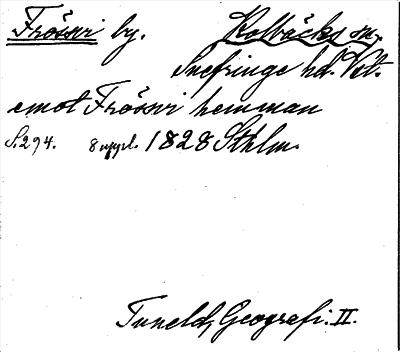 Frösvi by. Kolbäcks sn.
Snefringe hd. Vst.
emot Frösvi hemman
S.294. 8 uppl. 1828 Sthlm.
Tunelds Geografi. II.